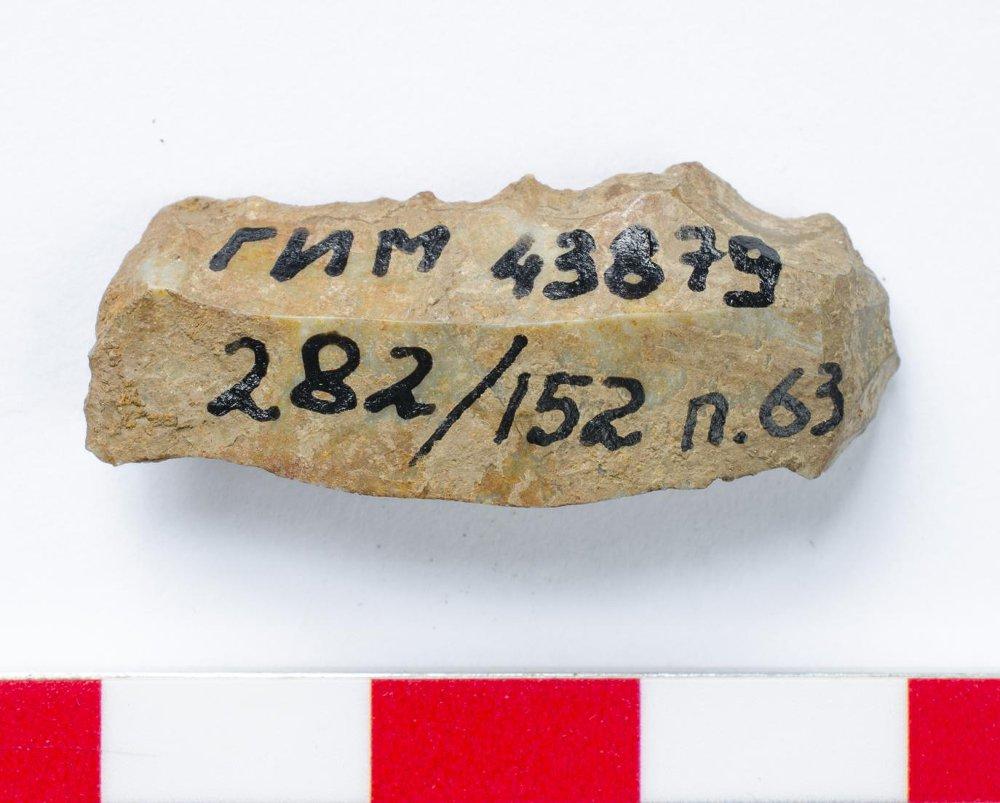 ГИМ 43879
282/152 п.63